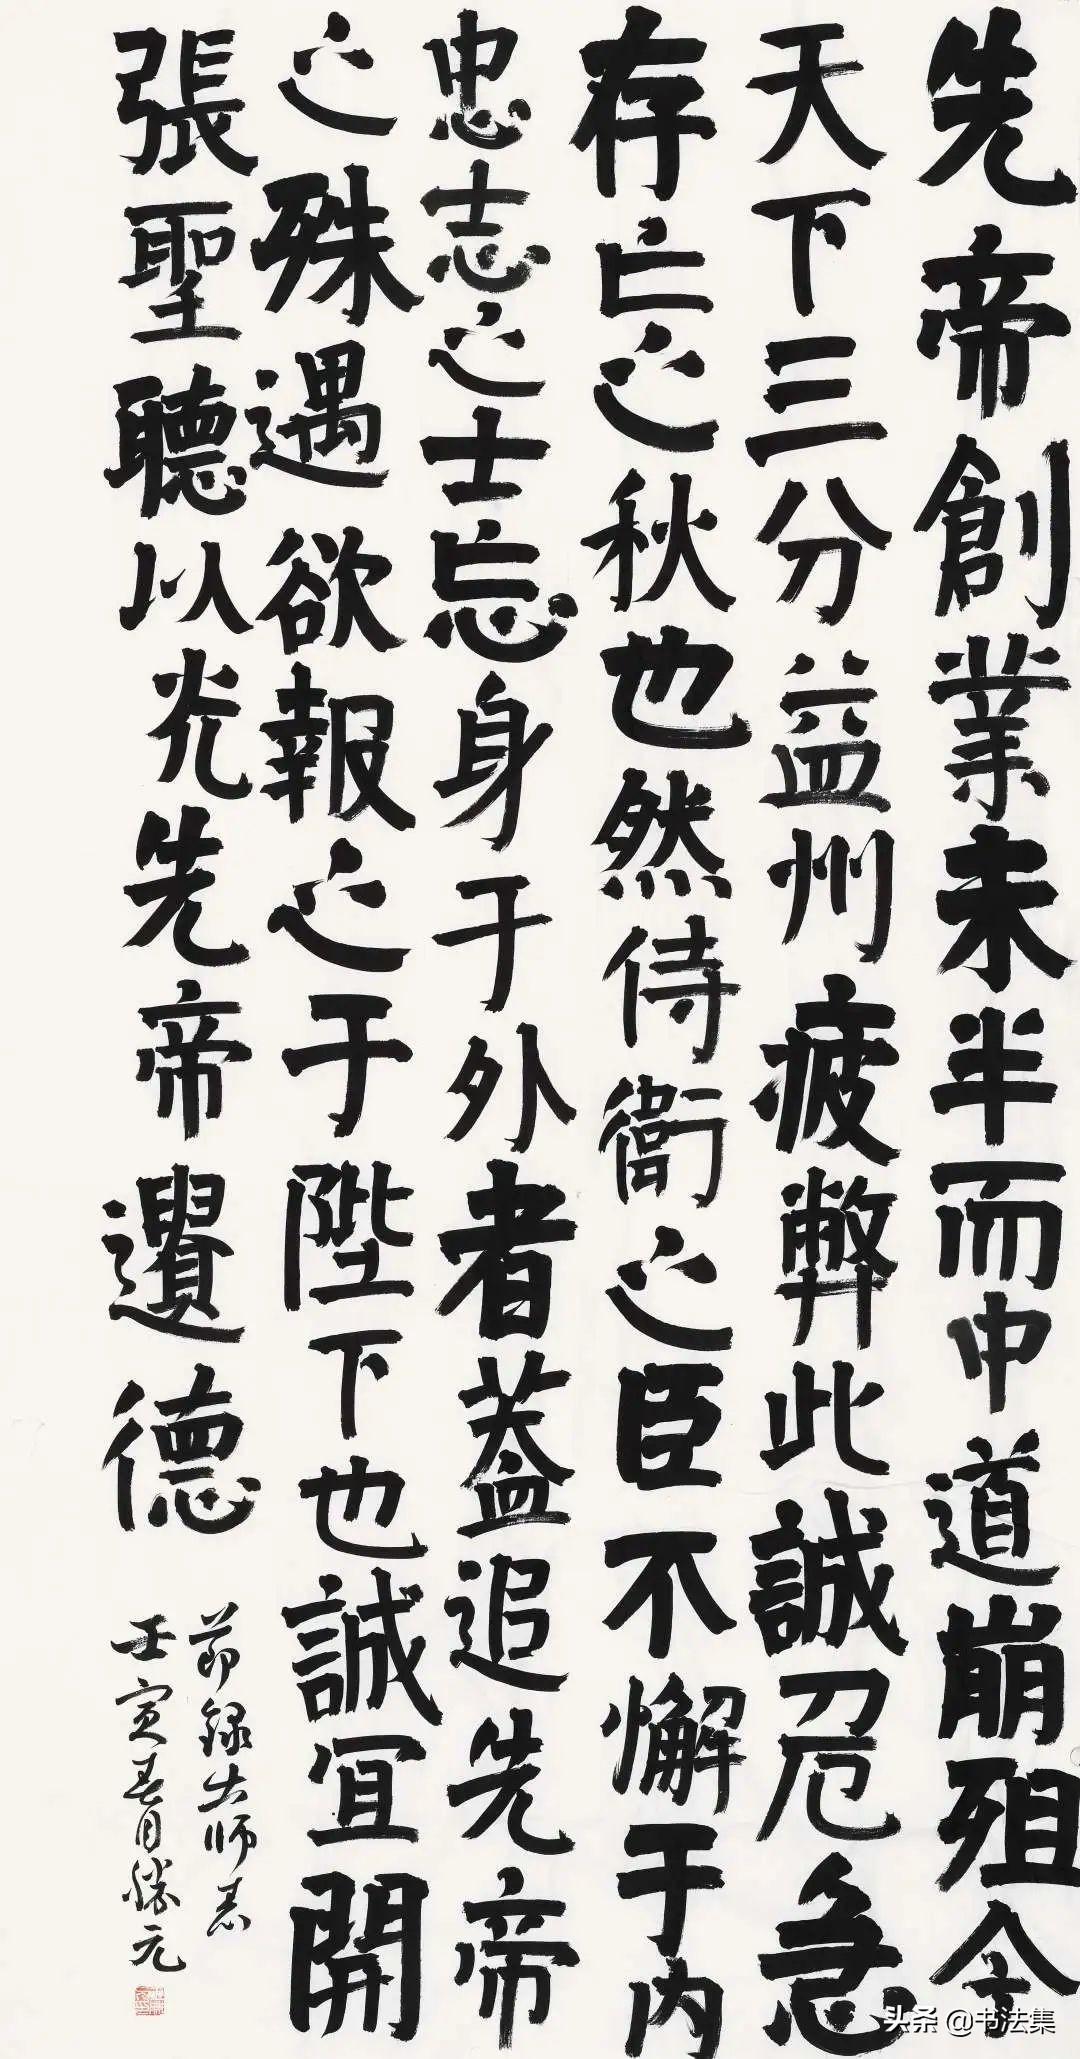 先帝創業未半而中道崩殂今
天下三分益州疲弊此誠危急
存亡之秋也然侍衛之臣不懈于内
忠志之士忘身于外者蓋追先帝
之殊遇欲報之于陛下也誠宜開
張聖聽以光先帝遺德
節錄出師表
壬寅春月勝元
头条 @书法集